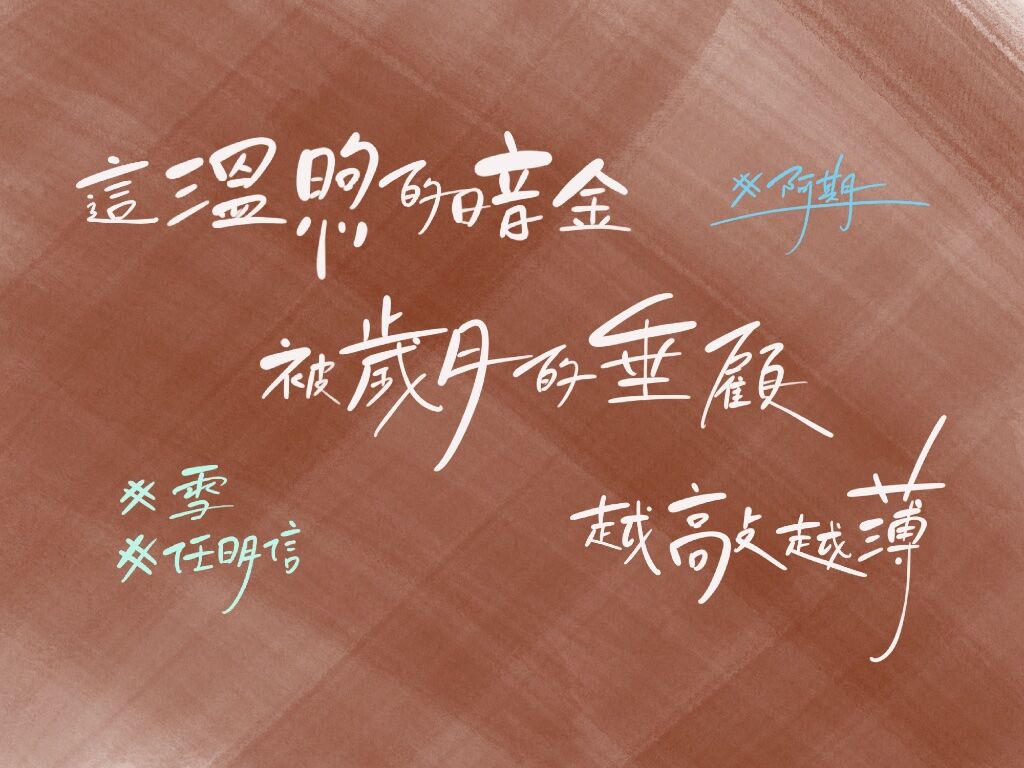 這溫煦的暗金
#阿期
被歲月的垂顧
越敲越薄
#雪
#任明信